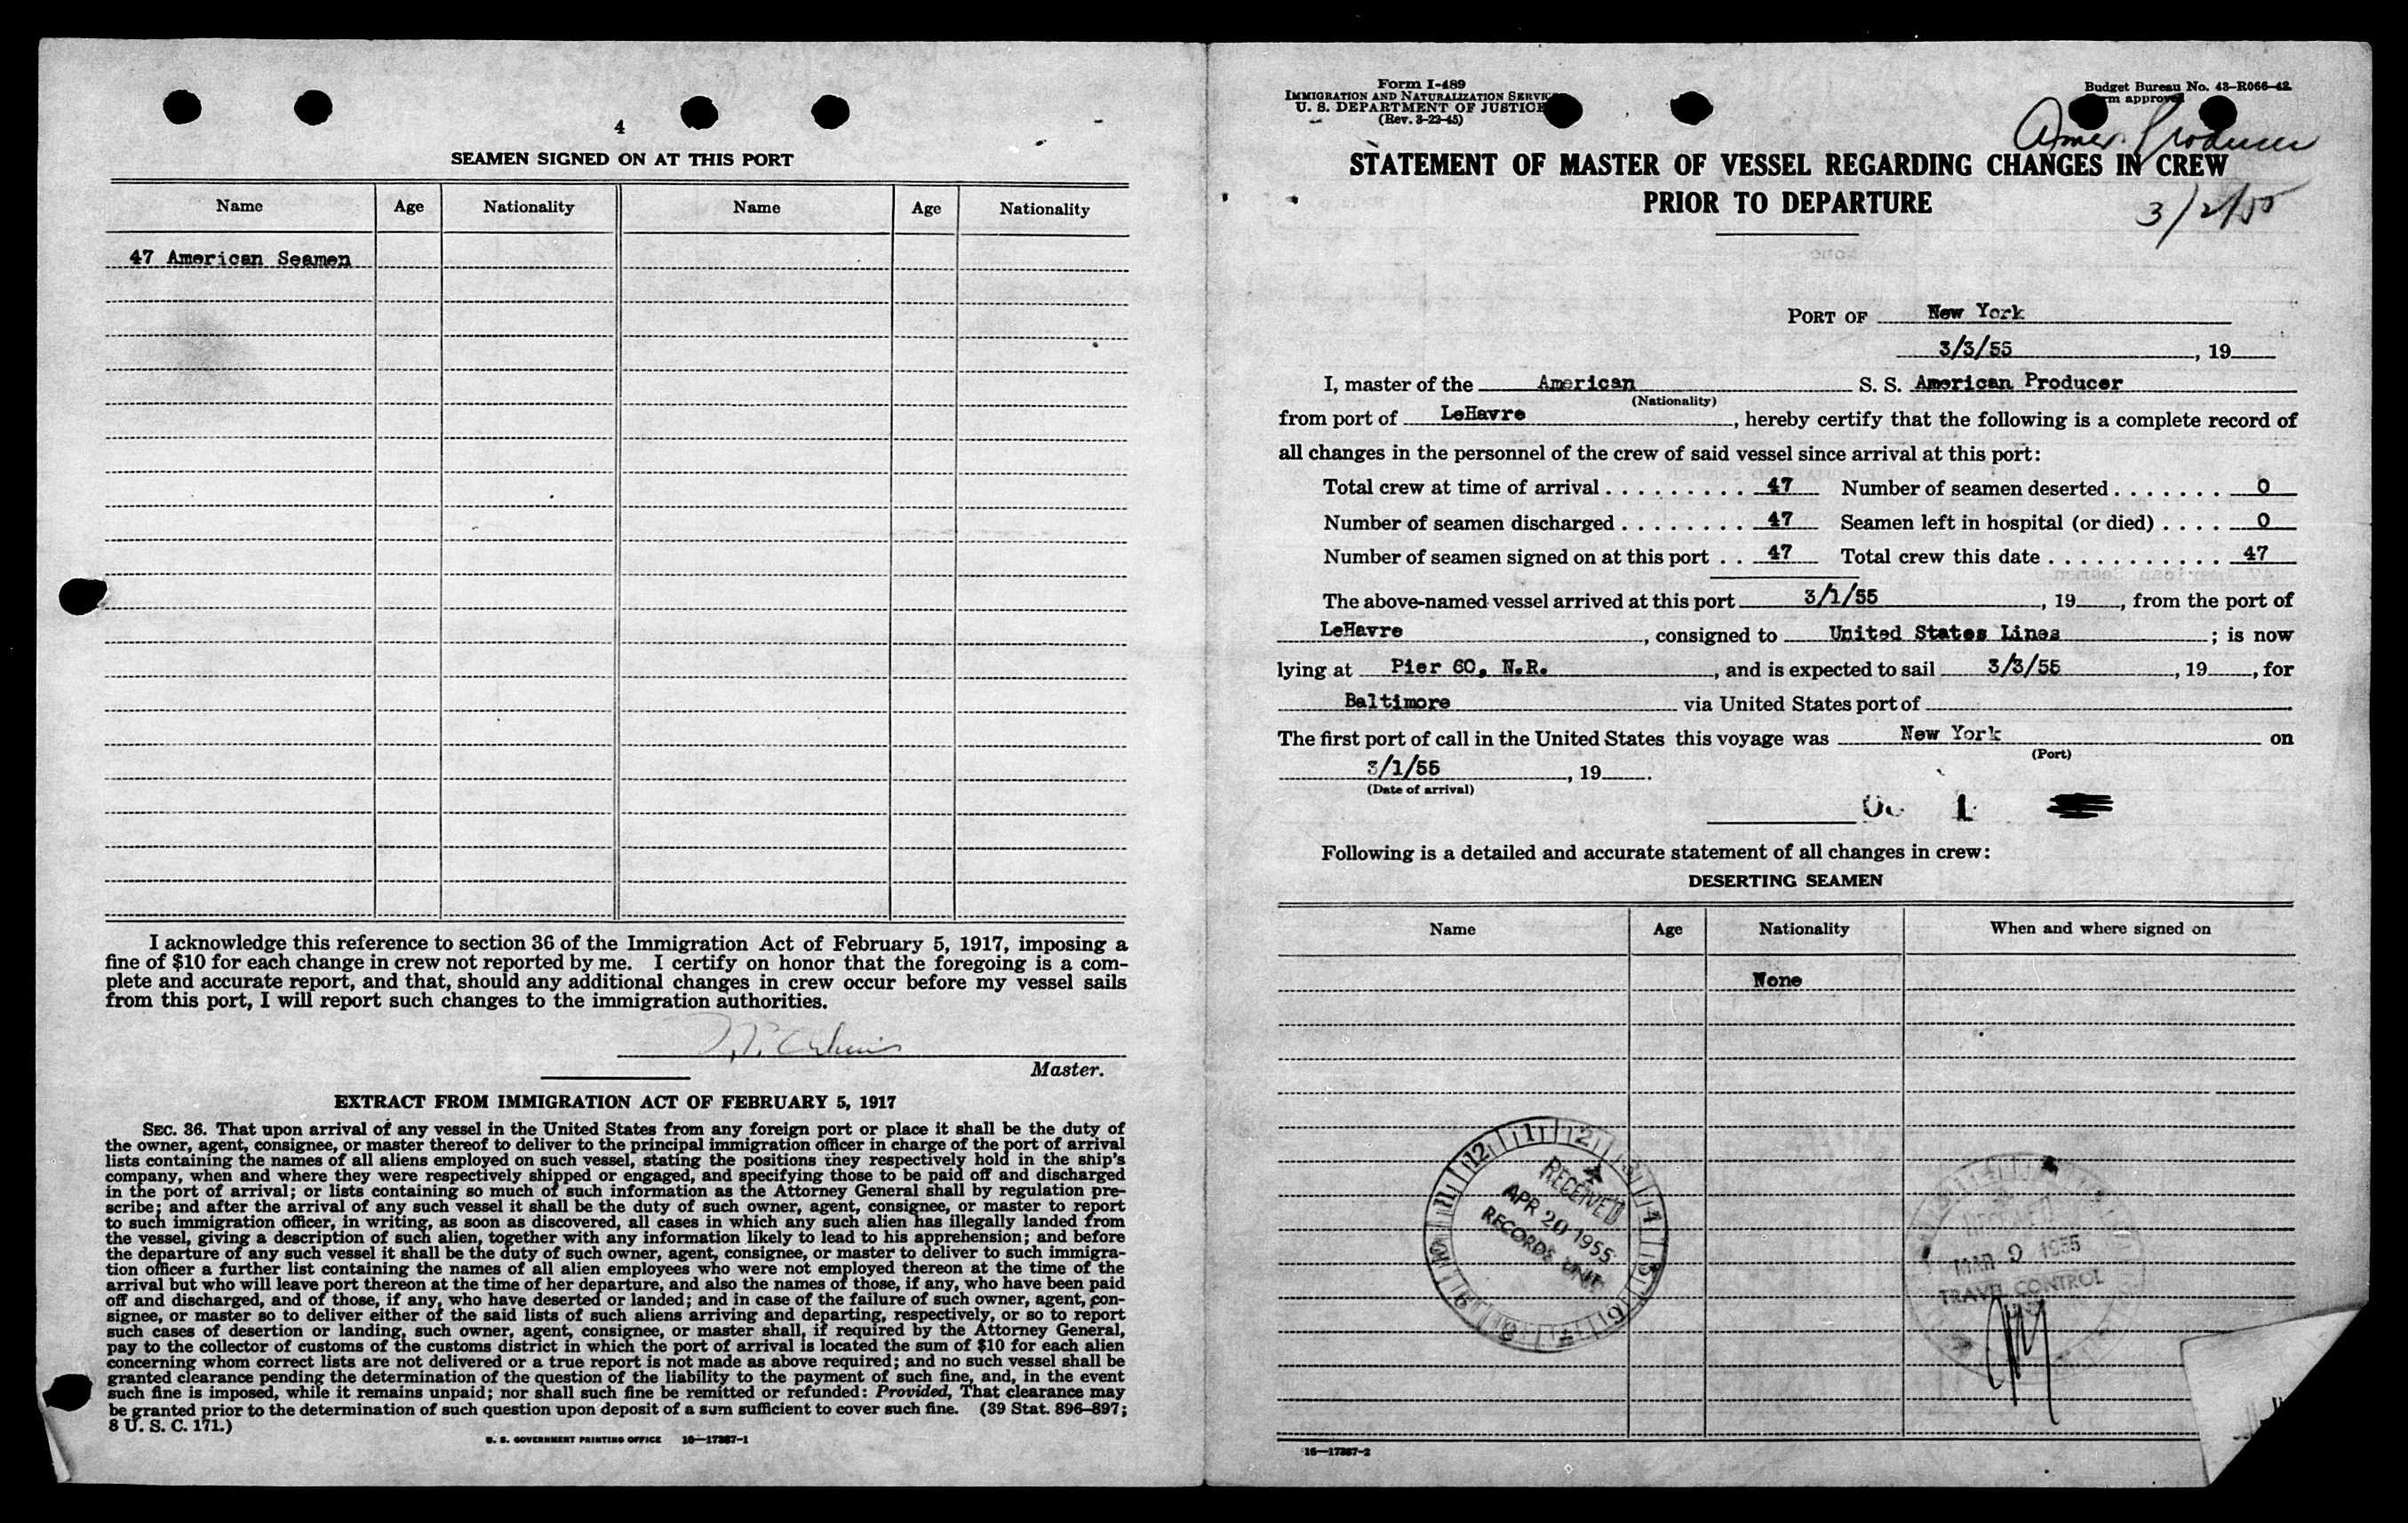 4
SEAMEN SIGNED ON AT THIS PORT
Name Age Nationality Name Age Nationality
47 American Seamen
I acknowledge this reference to section 36 of the Immigration Act of February 5, 1917, imposing a
fine of $10 for each change in crew not reported by me. I certify on honor that the foregoing is a com-
plete and accurate report, and that, should any additional changes in crew occur before my vessel sails
from this port, I will report such changes to the immigration authorities.
Master.
EXTRACT FROM IMMIGRATION ACT OF FEBRUARY 5, 1917
SEC. 36. That upon arrival of any vessel in the United States from any foreign port or place it shall be the duty of
the owner, agent, consignee, or master thereof to deliver to the principal immigration officer in charge of the port of arrival
lists containing the names of all aliens employed on such vessel, stating the positions they respectively hold in the ship's
company, when and where they were respectively shipped or engaged, and specifying those to be paid off and discharged
in the port of arrival; or lists containing so much of such information as the Attorney General shall by regulation pre-
scribe; and after the arrival of any such vessel it shall be the duty of such owner, agent, consignee, or master to report
to such immigration officer, in writing, as soon as discovered, all cases in which any such alien has illegally landed from
the vessel, giving a description of such alien, together with any information likely to lead to his apprehension; and before
the departure of any such vessel it shall be the duty of such owner, agent, consignee, or master to deliver to such immigra-
tion officer a further list containing the names of all alien employees who were not employed thereon at the time of the
arrival but who will leave port thereon at the time of her departure, and also the names of those, if any, who have been paid
off and discharged, and of those, if any, who have deserted or landed; and in case of the failure of such owner, agent, con-
signee, or master so to deliver either of the said lists of such aliens arriving and departing, respectively, or so to report
such cases of desertion or landing, such owner, agent, consignee, or master shall, if required by the Attorney General,
pay to the collector of customs of the customs district in which the port of arrival is located the sum of $10 for each alien
concerning whom correct lists are not delivered or a true report is not made as above required; and no such vessel shall be
granted clearance pending the determination of the question of the liability to the payment of such fine, and, in the event
such fine is imposed, while it remains unpaid; nor shall such fine be remitted or refunded: Provided, That clearance may
be granted prior to the determination of such question upon deposit of a sum sufficient to cover such fine. (39 Stat. 896–897;
8 U. S. C. 171.)
U. S. GOVERNMENT PRINTING OFFICE 16—17387-1
Form I-489
IMMIGRATION AND NATURALIZATION SERVICE
U. S. DEPARTMENT OF JUSTICE
(Rev. 3-22-45)
Budget Bureau No. 43-R066-42
approved
Amer. Producer
STATEMENT OF MASTER OF VESSEL REGARDING CHANGES IN CREW
PRIOR TO DEPARTURE
3/2/55
PORT OF New York
3/3/55, 19
I, master of the American S. S. American Producer
(Nationality)
from port of LeHavre, hereby certify that the following is a complete record of
all changes in the personnel of the crew of said vessel since arrival at this port:
Total crew at time of arrival . . . . . . . . . . 47 Number of seamen deserted . . . . . . . 0
Number of seamen discharged . . . . . . . . 47 Seamen left in hospital (or died) . . . . 0
Number of seamen signed on at this port . . 47 Total crew this date . . . . . . . . . . . 47
The above-named vessel arrived at this port 3/1/55, 19, from the port of
LeHavre, consigned to United States Lines; is now
lying at Pier 60, N.R., and is expected to sail 3/3/55, 19, for
Baltimore via United States port of
The first port of call in the United States this voyage was New York on
(Port)
3/1/55, 19.
(Date of arrival)
1
Following is a detailed and accurate statement of all changes in crew:
DESERTING SEAMEN
Name Age Nationality When and where signed on
None
RECEIVED
APR 20 1955
RECORDS UNIT
RECEIVED
MAR 2 1955
TRAVEL CONTROL
16—17387-2